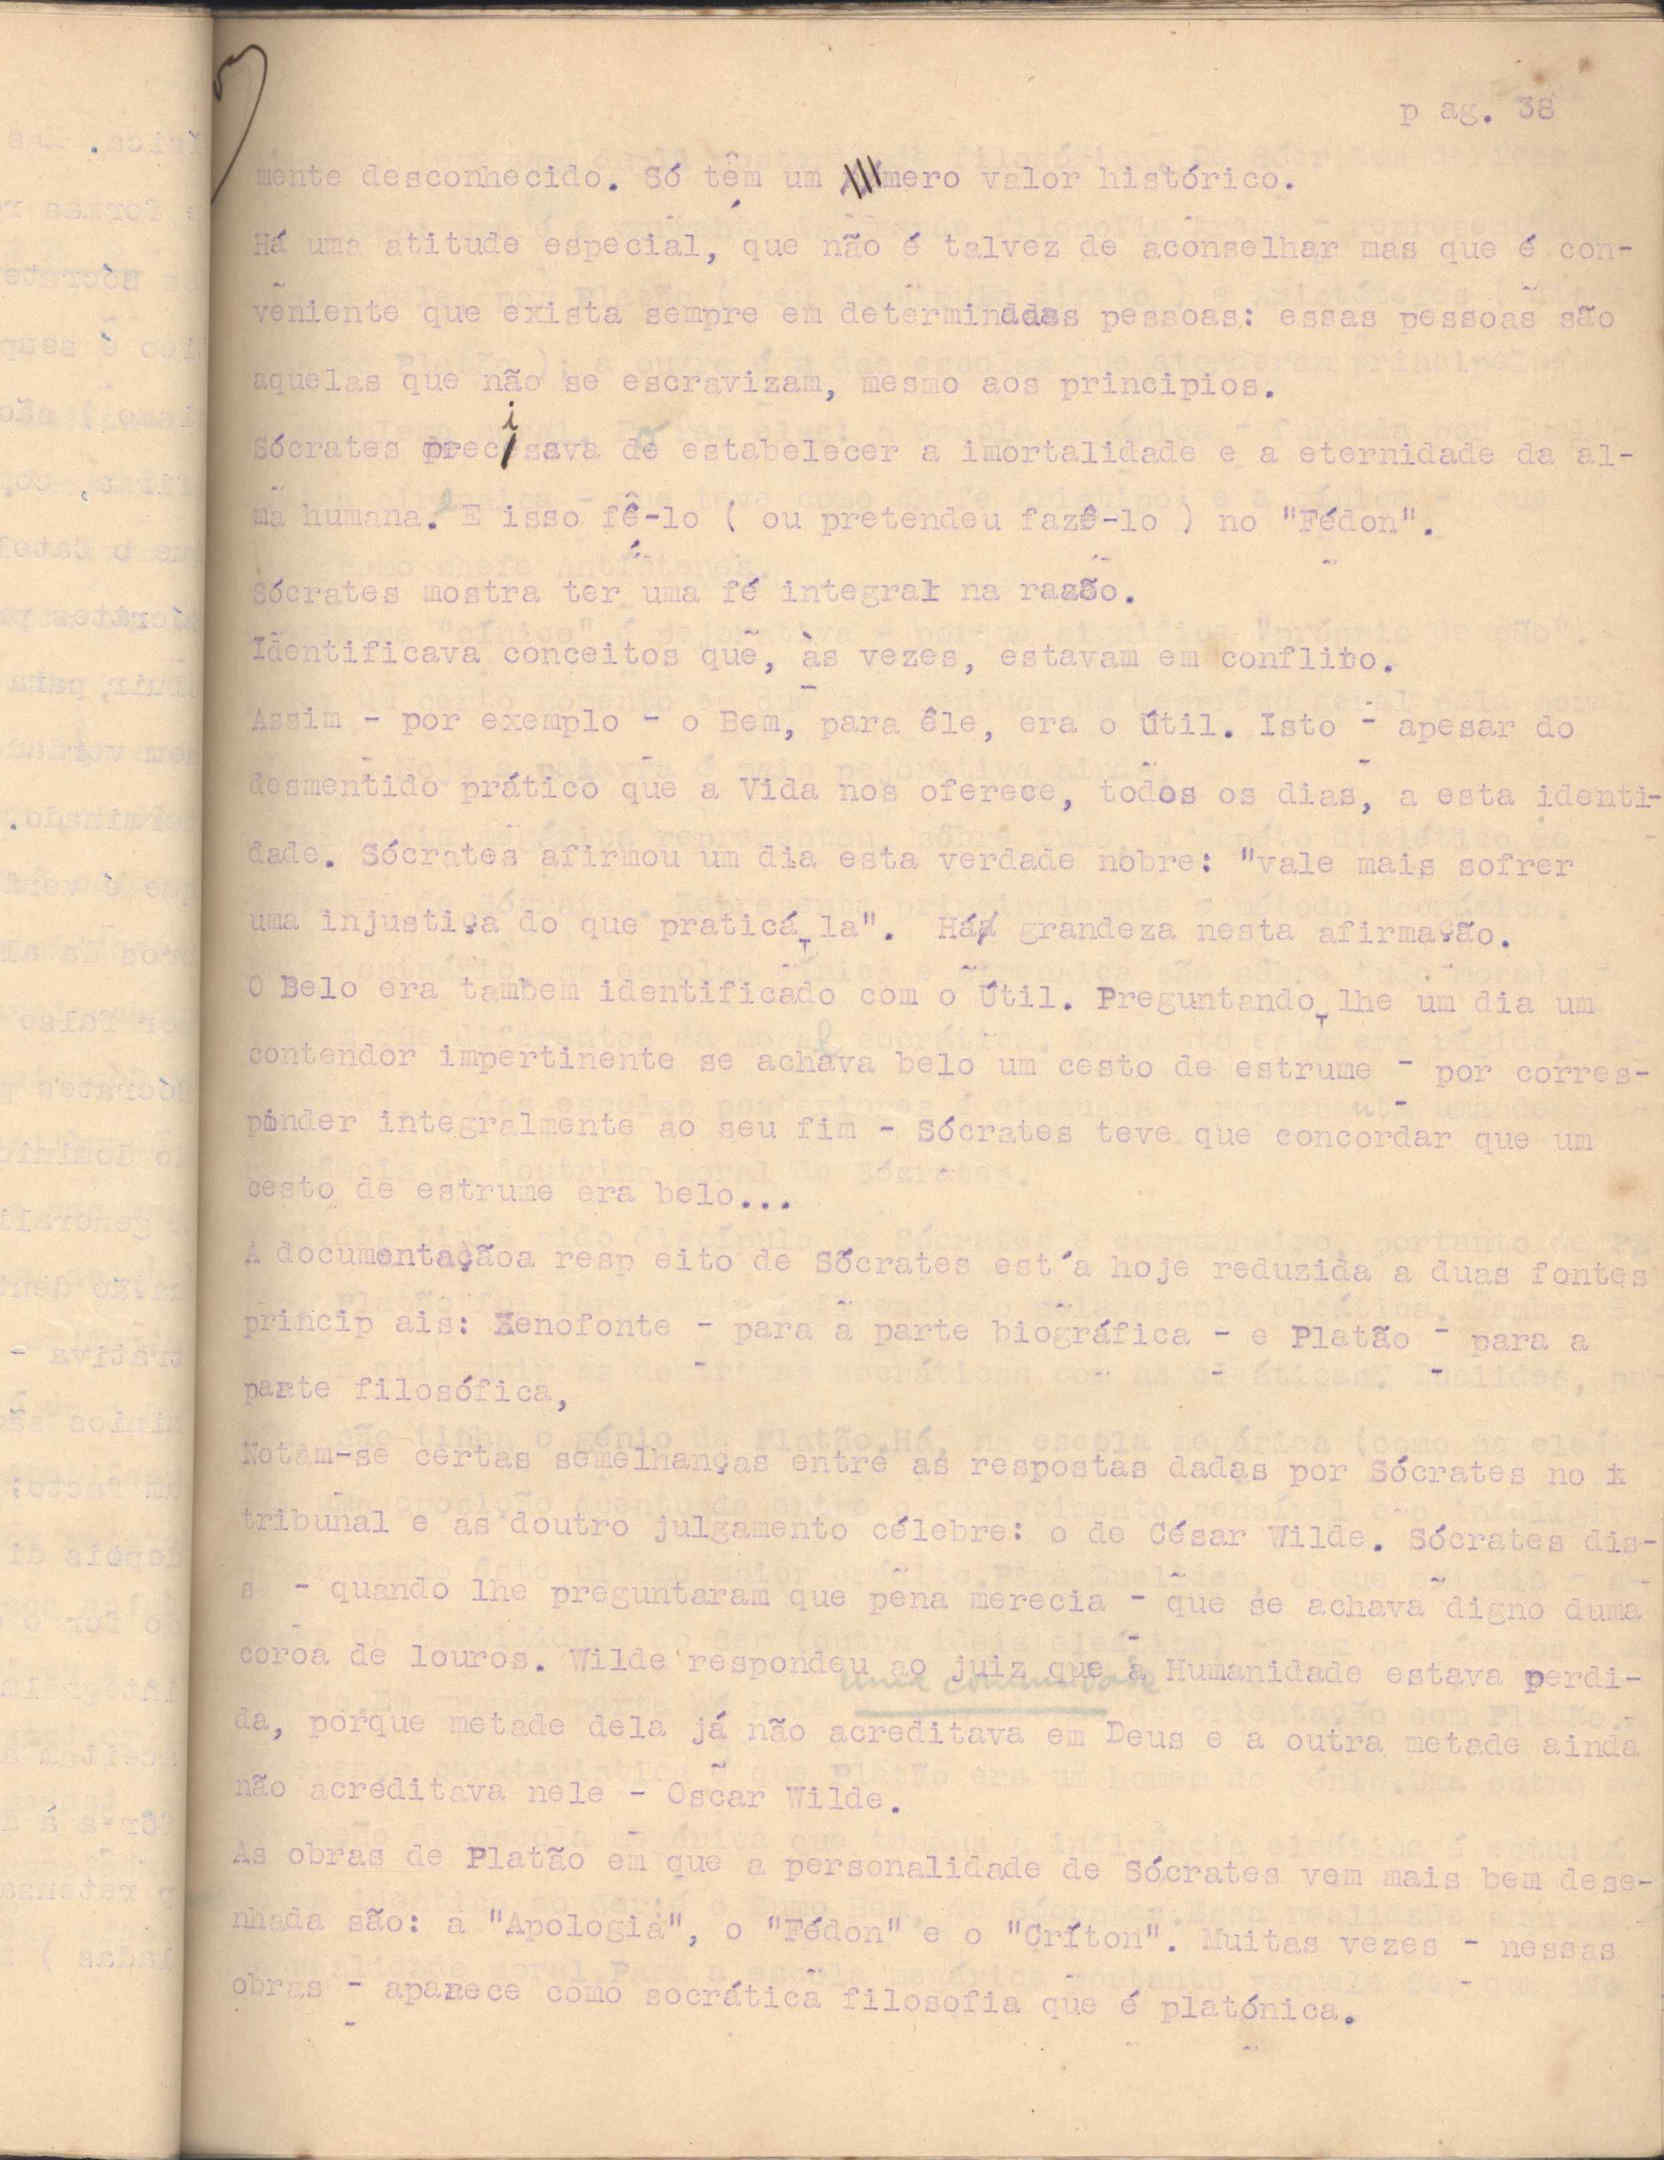 p ag. 38
mente desconhecido. Só têm um mero valor histórico.
Há uma atitude especial, que não é talvez de aconselhar mas que é con-
veniente que exista sempre em determinadas pessoas: essas pessoas são
aquelas que não se escravizam, mesmo aos principios.
Sócrates precisava de estabelecer a imortalidade e a eternidade da al-
ma humana. E isso fê-lo ( ou pretendeu fazê-lo ) no "Fédon".
Sócrates mostra ter uma fé integral na razão.
Identificava conceitos que, às vezes, estavam em conflito.
Assim - por exemplo - o Bem, para êle, era o Útil. Isto - apesar do
desmentido prático que a Vida nos oferece, todos os dias, a esta identi-
dade. Sócrates afirmou um dia esta verdade nobre: "vale mais sofrer
uma injustiça do que praticá-la". Há grandeza nesta afirmação.
O Belo era tambem identificado com o Útil. Preguntando-lhe um dia um
contendor impertinente se achava belo um cesto de estrume - por corres-
ponder integralmente ao seu fim - Sócrates teve que concordar que um
cesto de estrume era belo...
A documentaçãoa resp eito de Sócrates est´a hoje reduzida a duas fontes
princip ais: Xenofonte - para a parte biográfica - e Platão - para a
parte filosófica,
Notam-se certas semelhanças entre as respostas dadas por Sócrates no
tribunal e as doutro julgamento célebre: o de César Wilde. Sócrates dis-
s - quando lhe preguntaram que pena merecia - que se achava digno duma
coroa de louros. Wilde respondeu ao juiz que a Humanidade estava perdi-
uma comunidade
da, porque metade dela já não acreditava em Deus e a outra metade ainda
não acreditava nele - Oscar Wilde.
As obras de Platão em que a personalidade de Sócrates vem mais bem dese-
nhada são: a "Apologia", o "Fédon" e o "Críton". Muitas vezes - nessas
obras - aparece como socrática filosofia que é platónica.